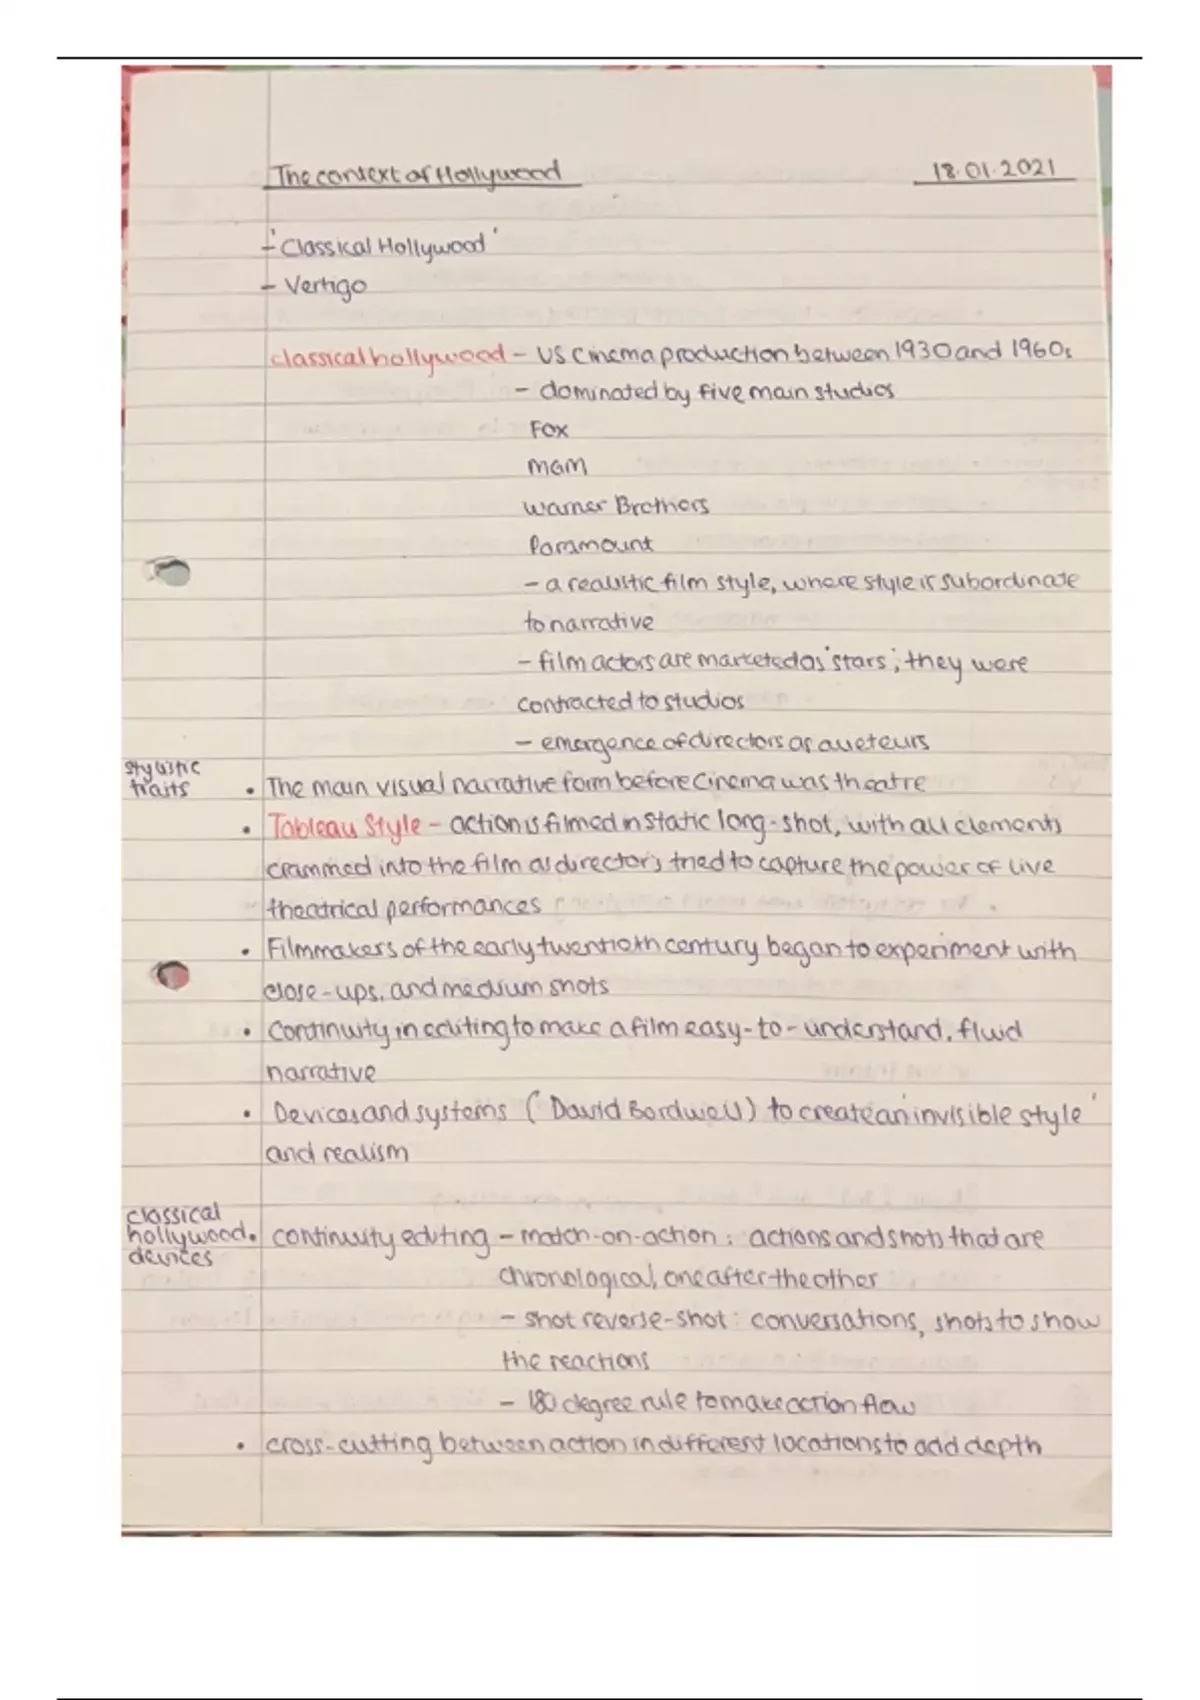 The context of Hollywood 18.01.2021
- 'Classical Hollywood'
- Vertigo
classical hollywood - US cinema production between 1930 and 1960s
- dominated by five main studios
Fox
MGM
Warner Brothers
Paramount
- a realistic film style, where style is subordinate
to narrative
- film actors are marketed as 'stars'; they were
contracted to studios
- emergence of directors as aueteurs
stylistic
traits
• The main visual narrative form before cinema was theatre
• Tableau Style - action is filmed in static long-shot, with all elements
crammed into the film as directors tried to capture the power of live
theatrical performances
• Filmmakers of the early twentieth century began to experiment with
close-ups, and medium shots
• Continuity in editing to make a film easy-to-understand, fluid
narrative
• Devices and systems (David Bordwell) to create an 'invisible style'
and realism
classical
hollywood
devices
• continuity editing - match-on-action: actions and shots that are
chronological, one after the other
- shot reverse-shot: conversations, shots to show
the reactions
- 180 degree rule to make action flow
• cross-cutting between action in different locations to add depth